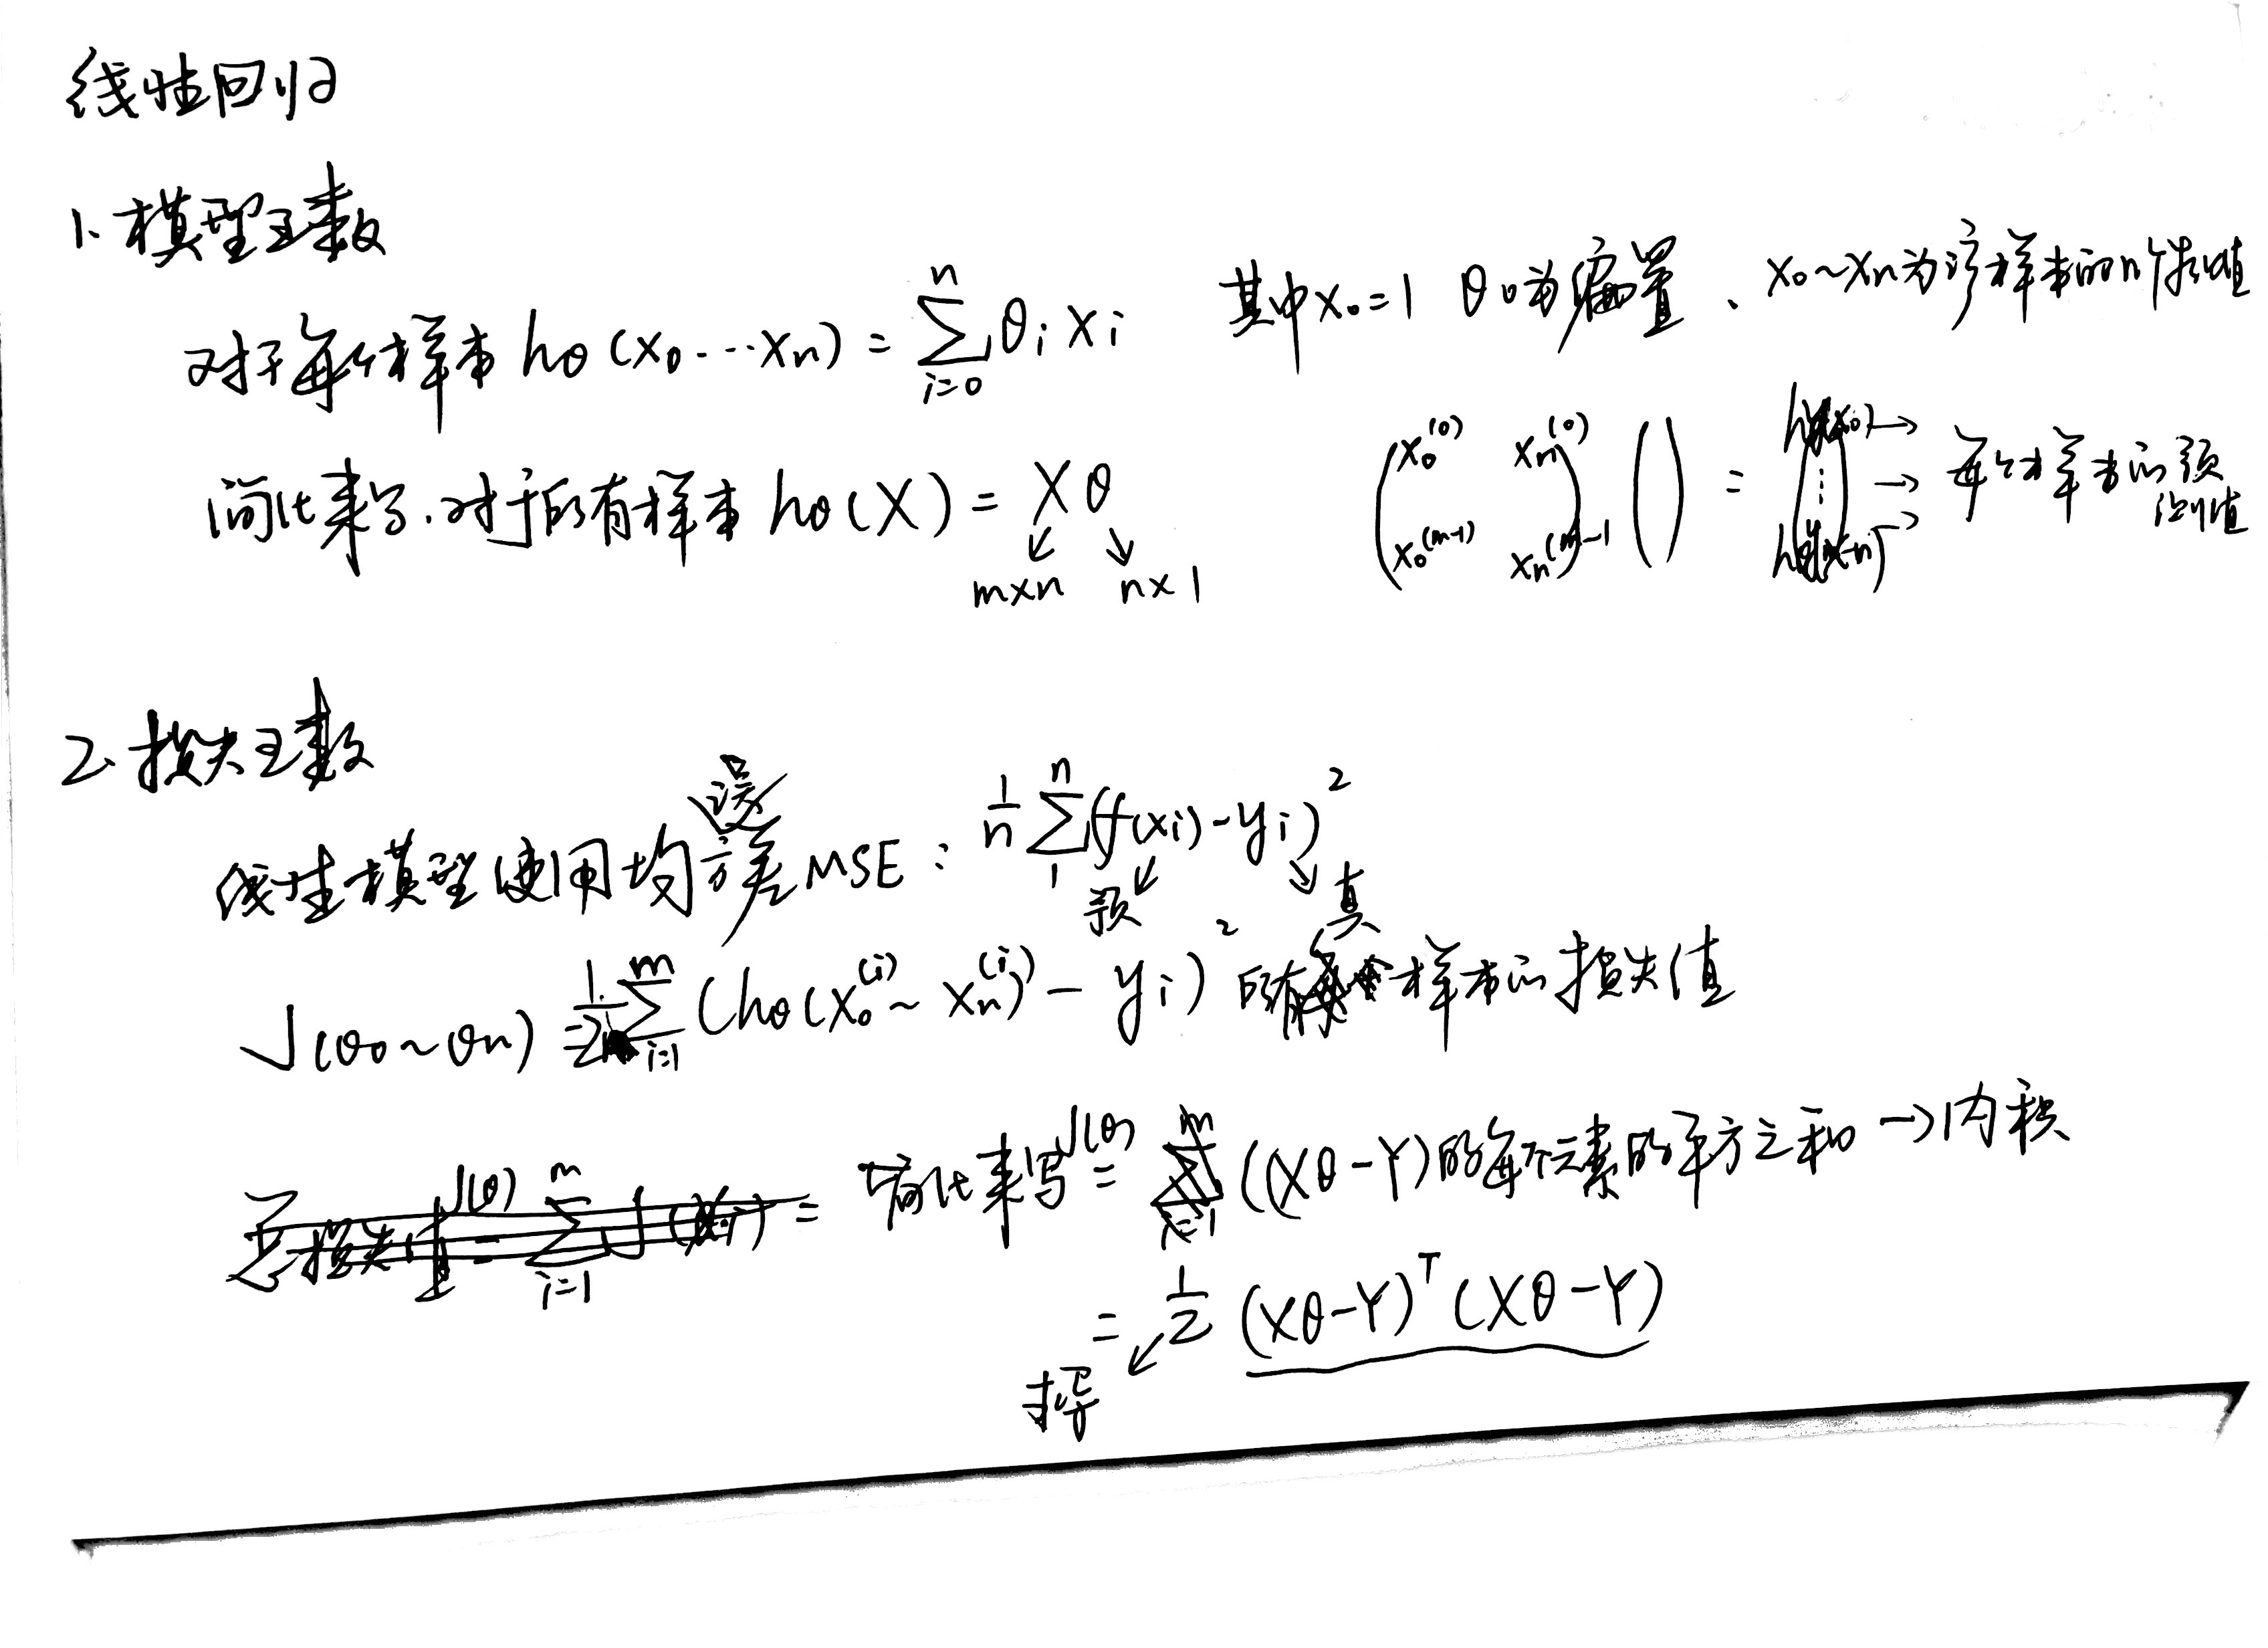 线性回归
1. 模型函数
对于每个样本 hθ(x0...xn) = ∑_{i=0}^{n} θi xi 其中x0=1 θ0为偏置、x0~xn为该样本的n个特征值
简化来写.对于所有样本 hθ(X) = Xθ
m×n n×1
(x0^(0) xn^(0) x0^(m-1) xn^(m-1)) ( ) = → 每个样本的预测值
2. 损失函数
线性模型使用均方误差MSE: 1/n ∑_{1}^{n} (f(xi)-yi)²
预 真
J(θ0~θn) = 1/2 ∑_{i=1}^{m} (hθ(x0^(i)~xn^(i)) - yi)² 所有样本的损失值
简化来写 J(θ) = ((Xθ-Y)的每个元素的平方之和 → 内积
= 1/2 (Xθ-Y)^T (Xθ-Y)
求导